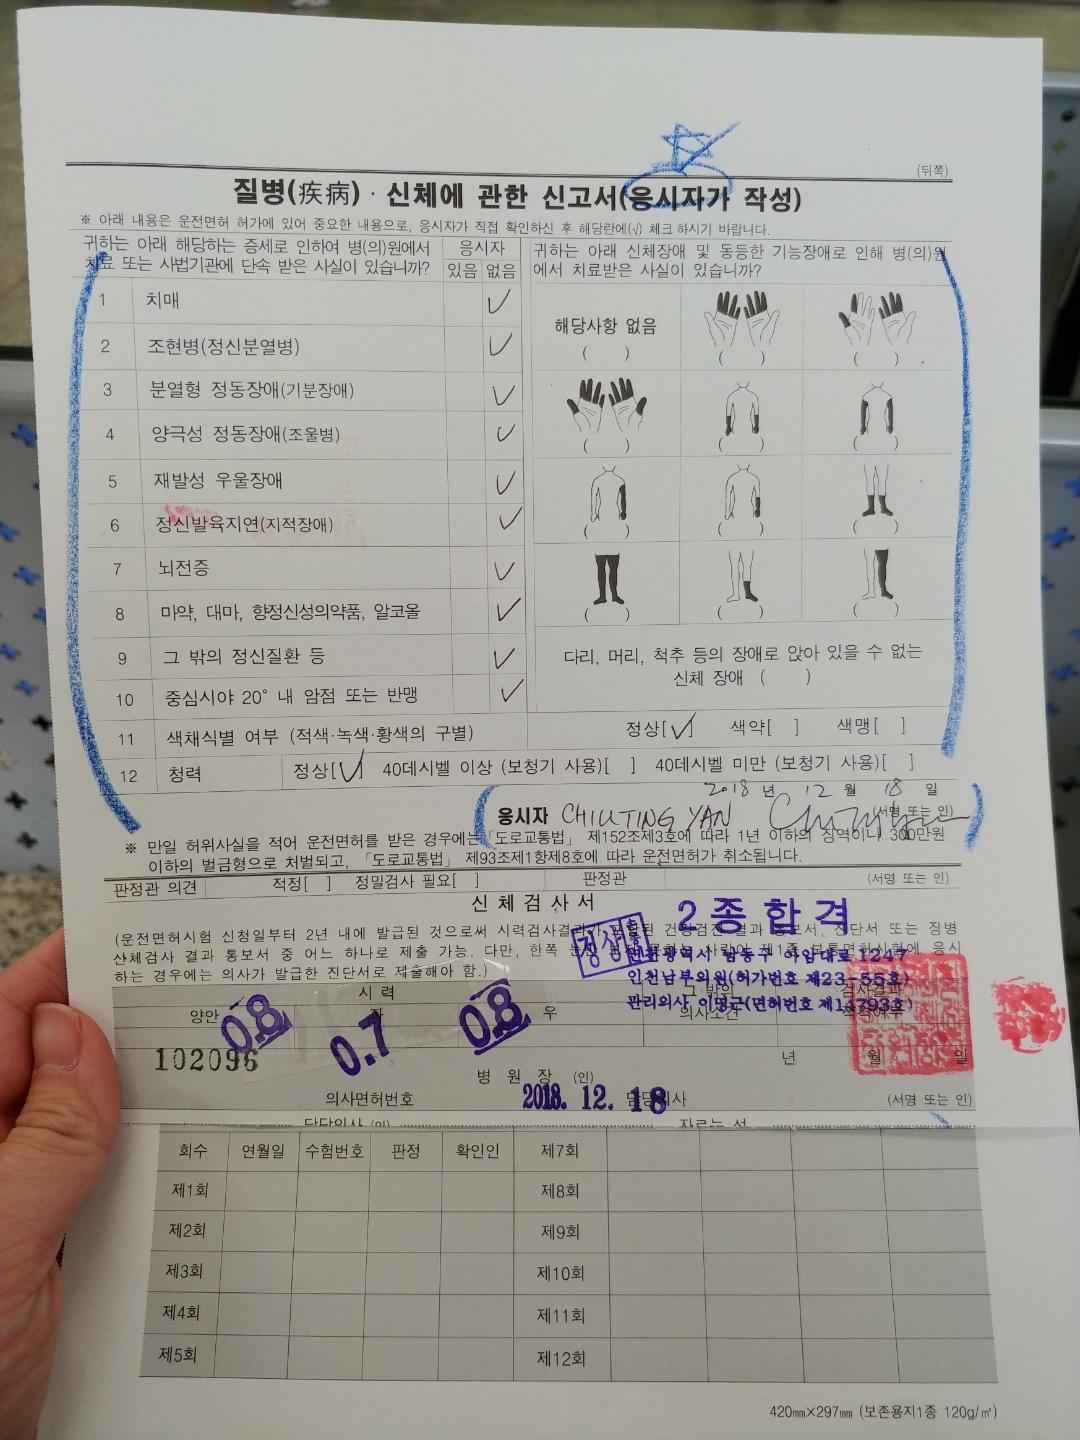 (뒤쪽)
질병(疾病)·신체에 관한 신고서(응시자가 작성)
※ 아래 내용은 운전면허 허가에 있어 중요한 내용으로, 응시자가 직접 확인하신 후 해당란에(√) 체크 하시기 바랍니다.
귀하는 아래 해당하는 증세로 인하여 병(의)원에서 치료 또는 사법기관에 단속 받은 사실이 있습니까?
응시자
있음 없음
1 치매 ✓
2 조현병(정신분열병) ✓
3 분열형 정동장애(기분장애) ✓
4 양극성 정동장애(조울병) ✓
5 재발성 우울장애 ✓
6 정신발육지연(지적장애) ✓
7 뇌전증 ✓
8 마약, 대마, 향정신성의약품, 알코올 ✓
9 그 밖의 정신질환 등 ✓
10 중심시야 20° 내 암점 또는 반맹 ✓
귀하는 아래 신체장애 및 동등한 기능장애로 인해 병(의)원
에서 치료받은 사실이 있습니까?
해당사항 없음
( ) ( ) ( )
( ) ( ) ( )
( ) ( ) ( )
( ) ( ) ( )
다리, 머리, 척추 등의 장애로 앉아 있을 수 없는
신체 장애 ( )
11 색채식별 여부 (적색·녹색·황색의 구별) 정상[✓] 색약[ ] 색맹[ ]
12 청력 정상[✓] 40데시벨 이상 (보청기 사용)[ ] 40데시벨 미만 (보청기 사용)[ ]
2018 년 12 월 18 일
응시자 CHIUTING YAN (서명 또는 인)
※ 만일 허위사실을 적어 운전면허를 받은 경우에는 「도로교통법」 제152조제3호에 따라 1년 이하의 징역이나 300만원
이하의 벌금형으로 처벌되고, 「도로교통법」 제93조제1항제8호에 따라 운전면허가 취소됩니다.
판정관 의견 적정[ ] 정밀검사 필요[ ] 판정관 (서명 또는 인)
신체검사서
2종합격
(운전면허시험 신청일부터 2년 내에 발급된 것으로써 시력검사결과가 포함된 건강검진 결과 통보서, 진단서 또는 질병
인천광역시 남동구 아암대로 1247
산체검사 결과 통보서 중 어느 하나로 제출 가능. 다만, 한쪽 사람이 제1종 보통면허시험에 응시
하는 경우에는 의사가 발급한 진단서로 제출해야 함.)
인천남부의원(허가번호 제23-55호)
관리의사 이명근(면허번호 제147938호)
시 력
그 밖의
의사소견
검사결과
적격여부
양안 0.8 좌 0.7 0.8 우
102096
년 월 일
병 원 장 (인)
의사면허번호 2018. 12. 18 담당의사 (서명 또는 인)
담당의사 (인) 자르는 선
회수 연월일 수험번호 판정 확인인 제7회
제1회 제8회
제2회 제9회
제3회 제10회
제4회 제11회
제5회 제12회
420㎜×297㎜ (보존용지1종 120g/㎡)